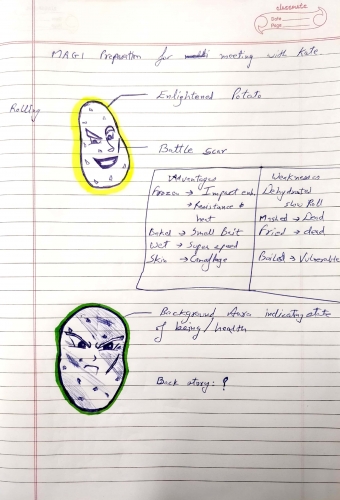 classmate
Date
Page
MAGI Preparation for meeting with Kate
Rolling
Enlightened Potato
Battle scar
Advantages
Frozen → Impact enh.
→ Resistance to
heat
Baked → Small Bait
Wet → Super speed
Skin → Camoflage
Weakness
Dehydrated
slow Roll
Mashed → Dead
Fried → dead
Boiled → Vulnerable
Background Aura indicating state
of being/health
Back story: ?